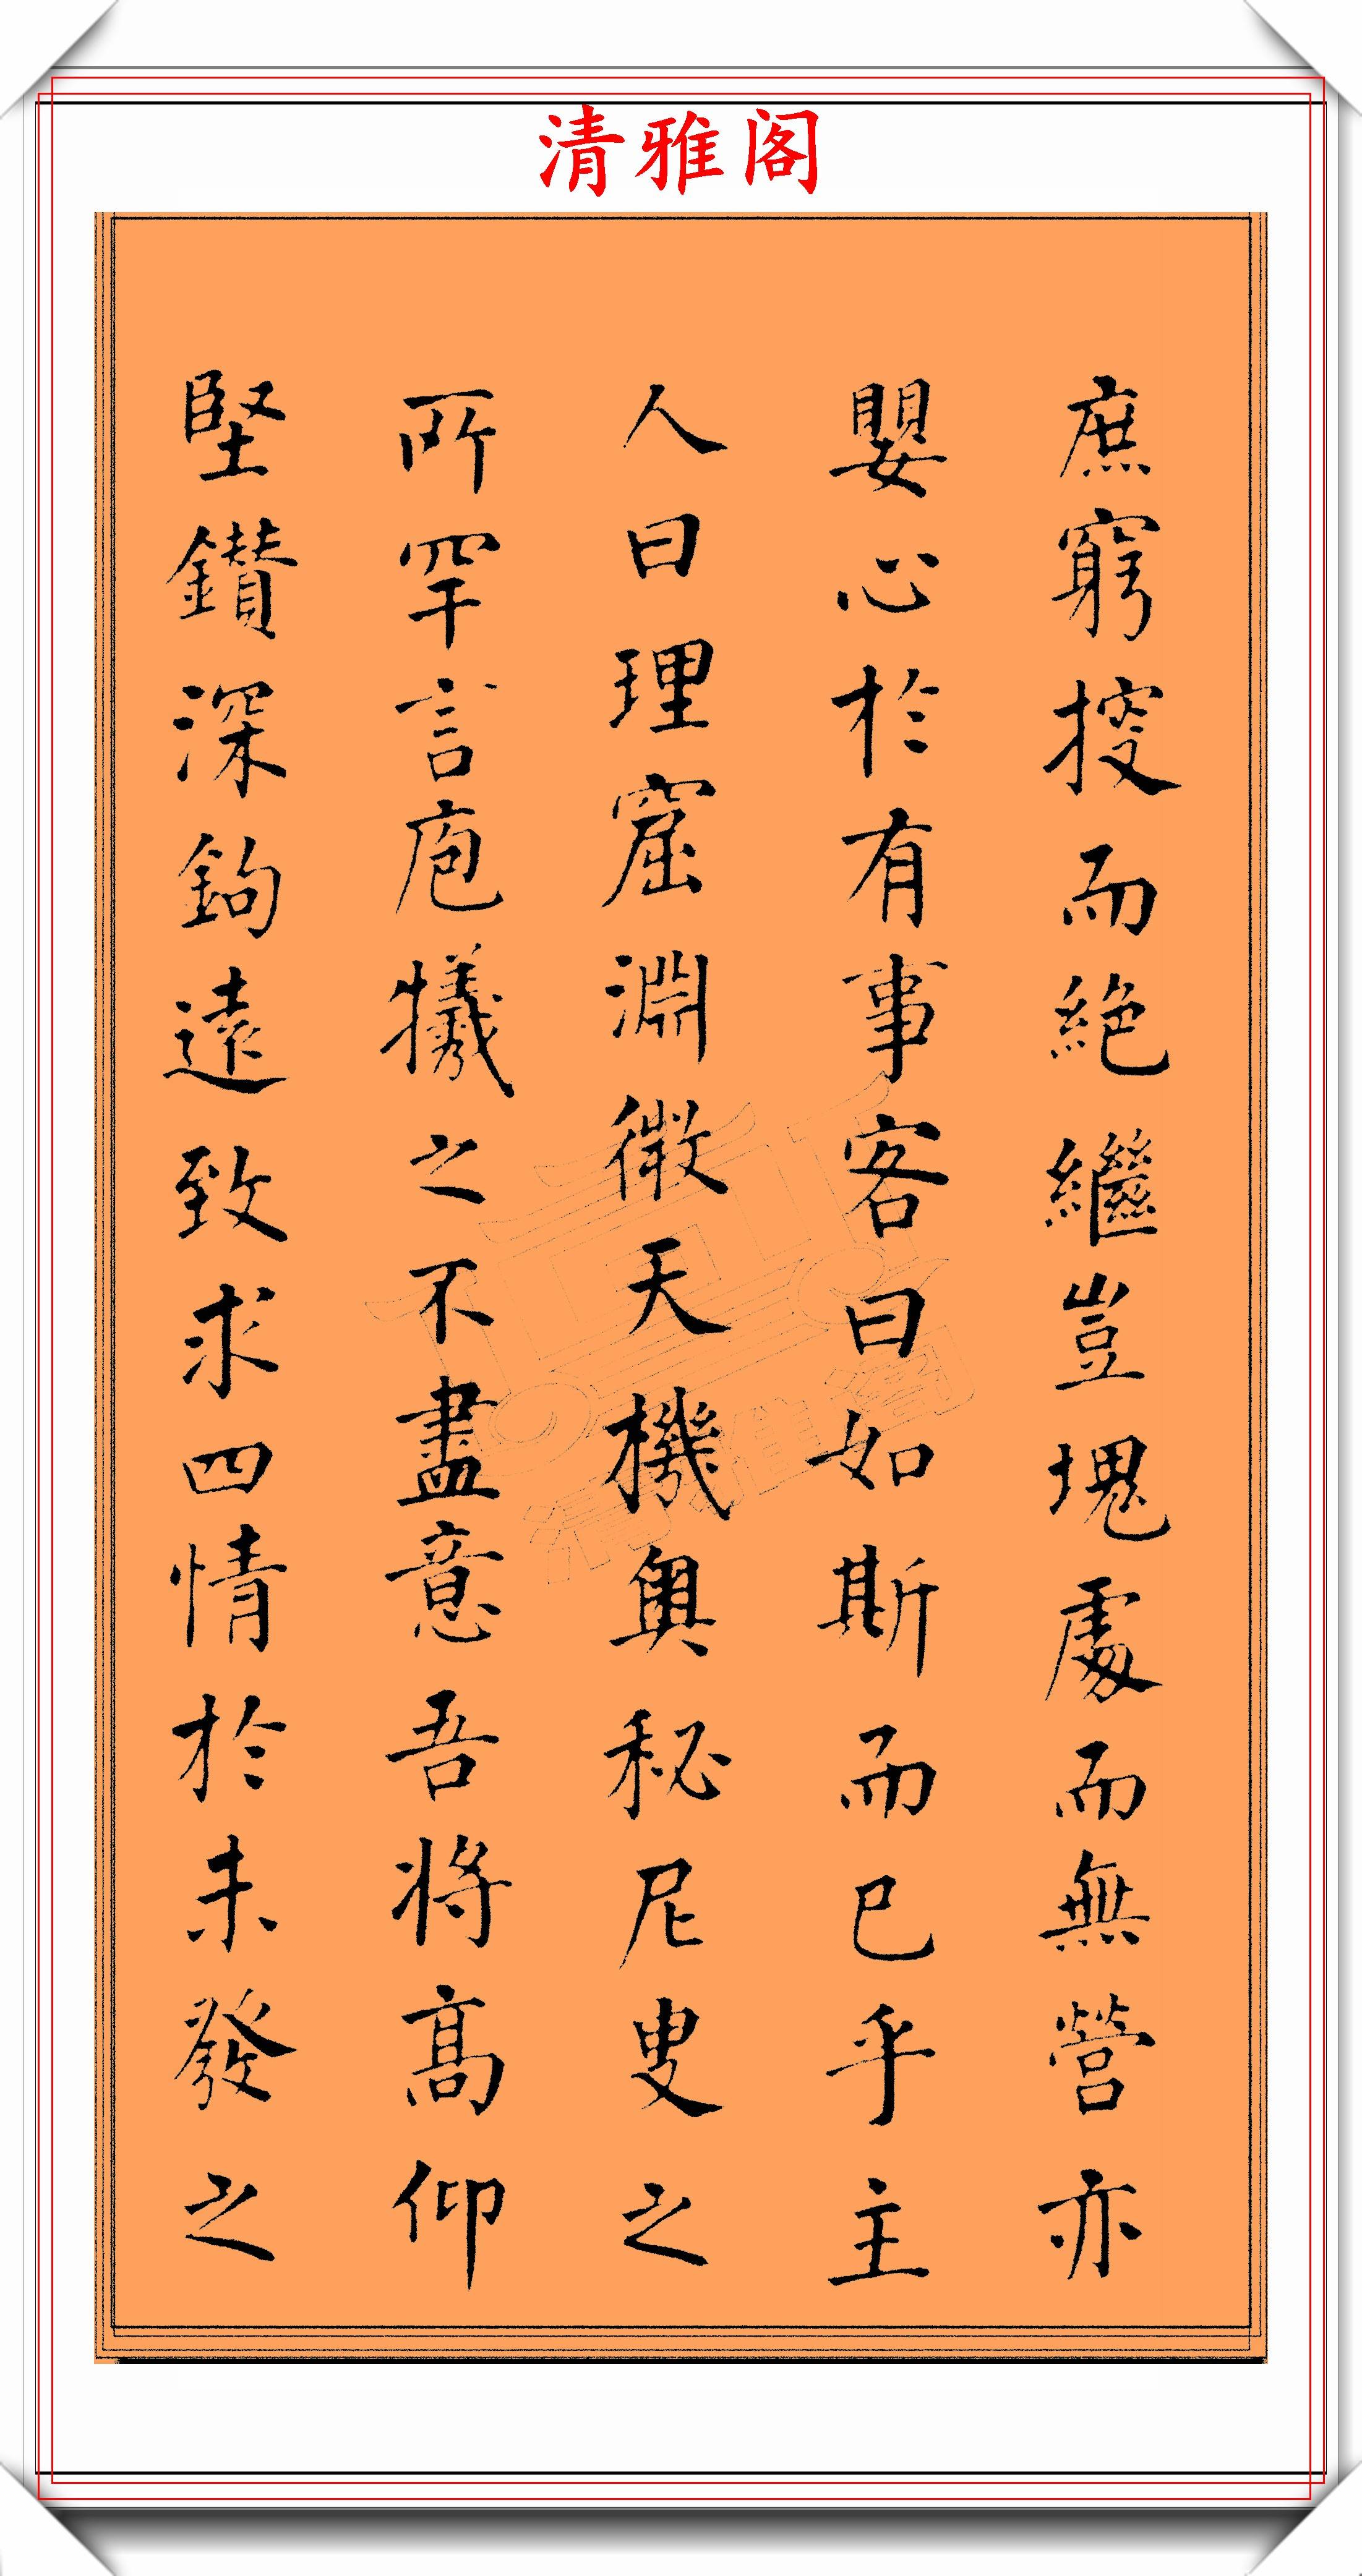 清雅阁
庶窮探而絶繼豈塊處而無營亦
嬰心於有事客曰如斯而已乎主
人曰理窟淵微天機奧秘尼叟之
所罕言庖犧之不盡意吾將高仰
堅鑽深鈎遠致求四情於未發之
清雅阁